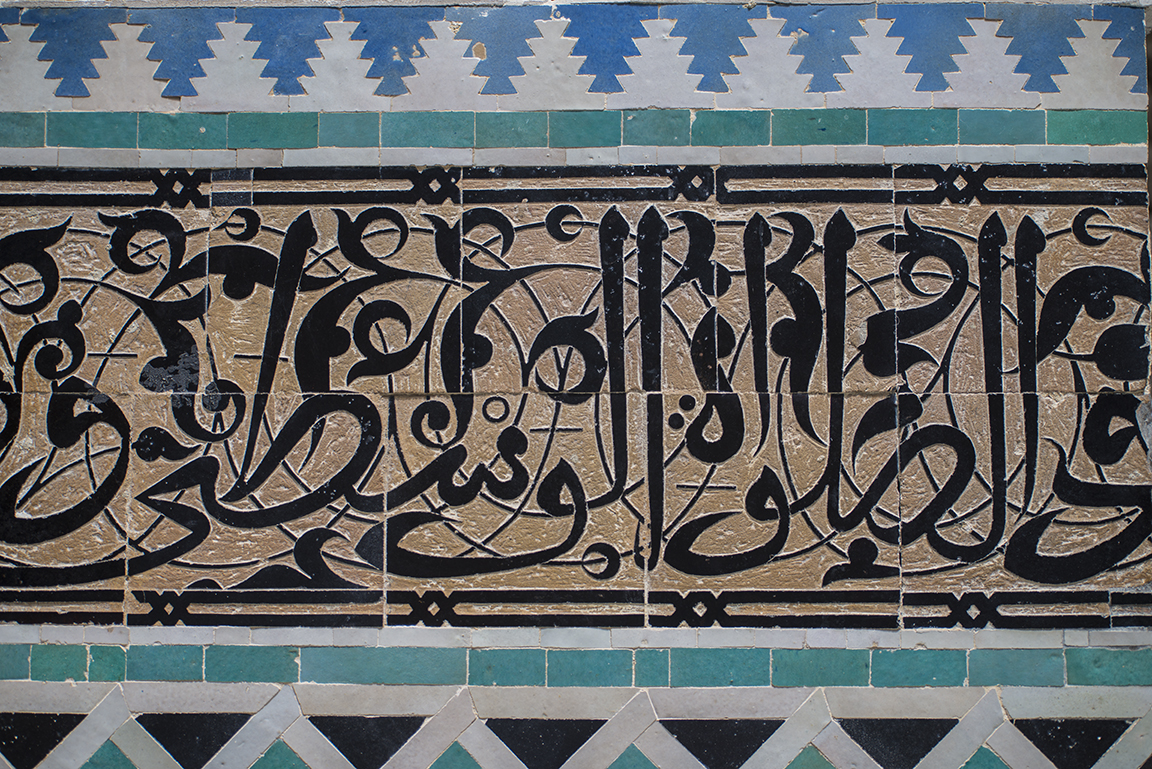 والصلوة الوسطى و